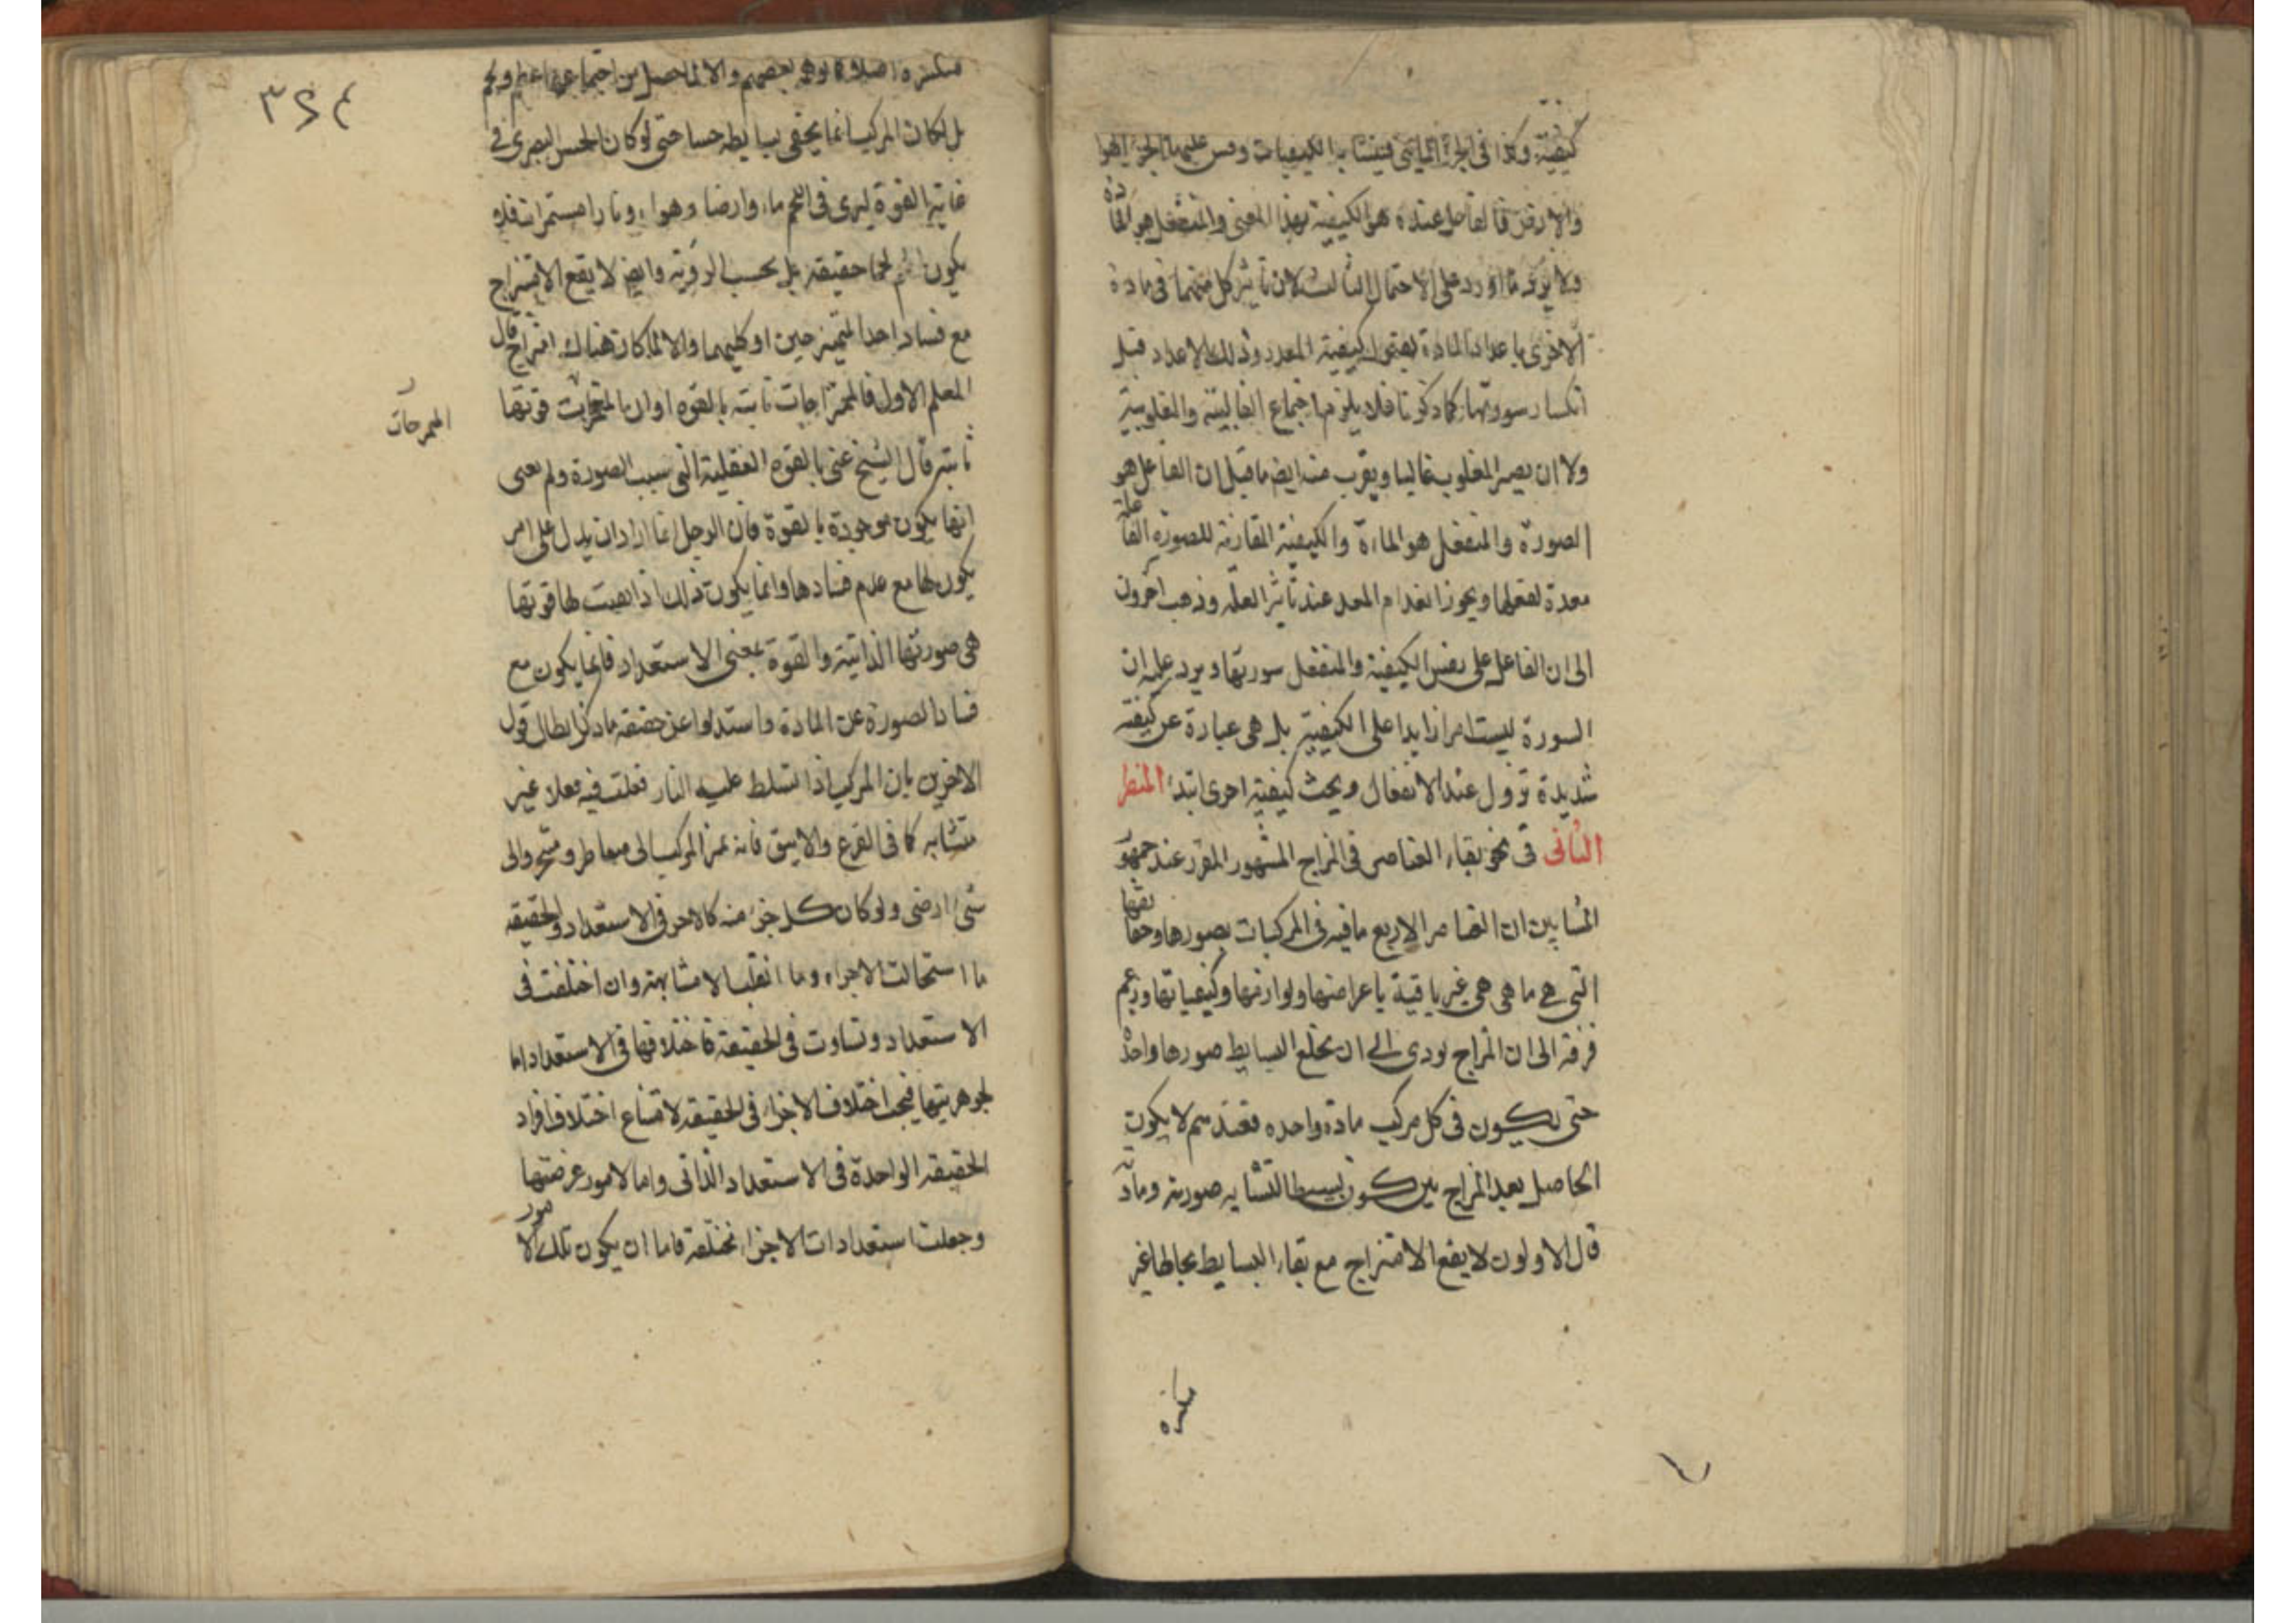 كيفية وكذا فى الجزء المائى فيتشابه الكيفيات وقس عليهما الجزء الهوا
والارض فالفاعل عنده هو الكيفية بهذا المعنى والمنفعل هو الما
دة
ولا يرد ما اورد على الاحتمال الثالث لان تاثير كل منهما فى مادة
الاخرى باعداد المادة لقبول كيفية المعدد وذلك الاعداد قبل
انكسار سورتها كما ذكرنا فلا يلزم اجتماع الغالبية والمغلوبية
ولا ان يصير المغلوب غالبا ويقرب منه ايض ما قيل ان الفاعل هو
الصورة والمنفعل هو المادة والكيفية المقارنة للصورة الفا
علة
معدة لفعلها ويجوز انعدام المعد عند تاثير العلة وذهب اخرون
الى ان الفاعل على نفس الكيفية والمنفعل سورتها ويرد عليه ان
السورة ليست امرا زايدا على الكيفية بل هى عبارة عن كيفية
شديدة تزول عند الانفعال ويحث كيفية اخرى ابتداء المنظر
الثانى فى نحو بقاء العناصر فى المزاج المشهور المقرر عند جمهور
المشايين ان العناصر الاربع باقية فى المركبات بصورها وحقا
يقها
التى هى ما هى هى غير باقية باعراضها ولوازمها وكيفياتها وزعم
فرقة الى ان المزاج يودى الى ان يخلع البسايط صورها واحدة
حتى يكون فى كل مركب مادة واحده فعندهم لا يكون
الحاصل بعد المزاج بين كون بسيطا لتشابه صورته وماد
قال الاولون لا يقع الامتزاج مع بقاء البسايط بحالها غير
منكسرة
٣٢٤
منكسرة بعضهم والا لما حصل من اجتماعها
بل لكان المركب انما يخفى بسايطه حسا حتى لو كان الحس البصرى فى
غاية القوة ليرى فى اللحم ماء وارضا وهواء ونارا متميزات فلا
يكون اللحم لحما حقيقة بل بحسب الروية وايض لا يقع الامتزاج
مع فساد احد الممتزجين او كليهما والا لما كان هناك امتزاج قال
المعلم الاول فالممتزاجات ثابتة بالقوه اوان بالمتمزجات قوتها
الممزجات
ثابتة قال الشيخ عنى بالقوه الفعلية التى سبب الصورة ولم يعن
انها يكون موجودة بالقوة فان الرجل انما اراد ان يدل على امر
يكون لها مع عدم فسادها وانما يكون ذلك اذا بقيت لها قوتها
هى صورتها الذاتية والقوة بمعنى الاستعداد فانما يكون مع
فساد الصورة عن المادة واستدلوا عن حقيقة ما ذكر ابطال قول
الاخرين بان المركب اذا تسلط عليه النار فعلت فيه فعلا غير
متشابه كما فى القرع والانبيق فانه تميز المركب الى متقاطر ومتبخر والى
شىء ارضى ولو كان كل جزء منه كالاخر فى الاستعداد والحقيقة
ما استحالت الاجزاء وما انقلبت الا متشابهة وان اختلفت فى
الاستعداد وتساوت فى الحقيقة فاختلافها فى الاستعداد اما
لجوهريتها فيجب اختلاف الاجزاء فى الحقيقة لامتناع اختلاف افراد
الحقيقة الواحدة فى الاستعداد الذاتى واما لامور عرضتها
وجعلت استعدادات الاجزاء مختلفة فاما ان يكون تلك الا
مور